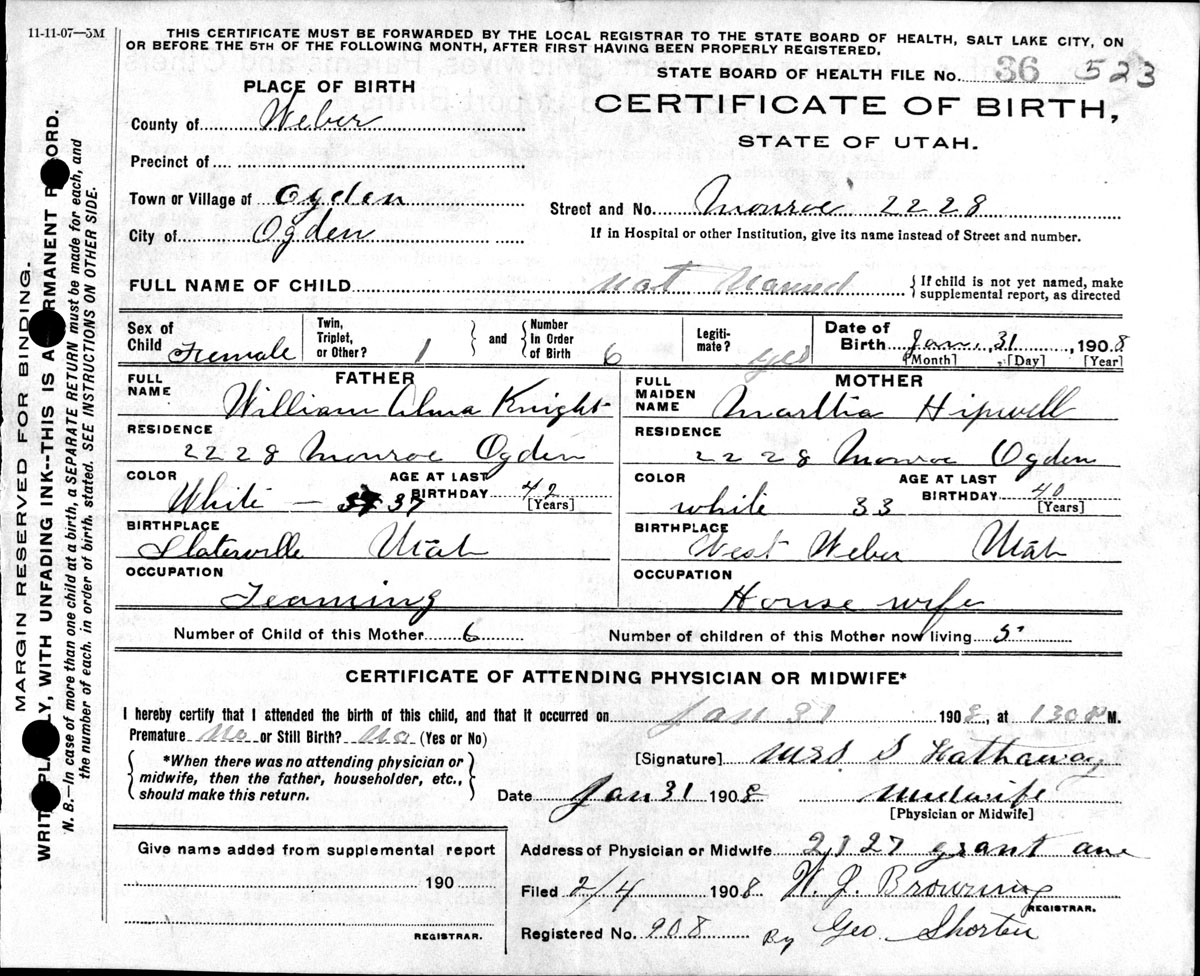 11-11-07—5M
THIS CERTIFICATE MUST BE FORWARDED BY THE LOCAL REGISTRAR TO THE STATE BOARD OF HEALTH, SALT LAKE CITY, ON
OR BEFORE THE 5TH OF THE FOLLOWING MONTH, AFTER FIRST HAVING BEEN PROPERLY REGISTERED.
STATE BOARD OF HEALTH FILE No. 36 523
PLACE OF BIRTH
CERTIFICATE OF BIRTH,
STATE OF UTAH.
County of Weber
Precinct of
Town or Village of Ogden
City of Ogden
Street and No. Monroe 2228
If in Hospital or other Institution, give its name instead of Street and number.
FULL NAME OF CHILD Not Named
{If child is not yet named, make
supplemental report, as directed
Sex of Child Female
Twin, Triplet, or Other? 1
and
Number In Order of Birth 6
Legitimate? Yes
Date of Birth Jan. 31, 1908
[Month] [Day] [Year]
FATHER
FULL NAME William Alma Knight
RESIDENCE
2228 Monroe Ogden
COLOR White — 37
AGE AT LAST BIRTHDAY 42
[Years]
BIRTHPLACE
Slaterville Utah
OCCUPATION
Teaming
MOTHER
FULL MAIDEN NAME Martha Hipwell
RESIDENCE
2228 Monroe Ogden
COLOR white 33
AGE AT LAST BIRTHDAY 40
[Years]
BIRTHPLACE
West Weber Utah
OCCUPATION
House wife
Number of Child of this Mother 6
Number of children of this Mother now living 5
CERTIFICATE OF ATTENDING PHYSICIAN OR MIDWIFE*
I hereby certify that I attended the birth of this child, and that it occurred on Jan 31 1908, at M.
Premature No or Still Birth? No (Yes or No)
{*When there was no attending physician or
midwife, then the father, householder, etc.,
should make this return.}
[Signature] Mrs S Hathaway
Date Jan 31 1908 Midwife
[Physician or Midwife]
Give name added from supplemental report
190
REGISTRAR.
Address of Physician or Midwife grant ave
Filed 2/4 1908 W. J. Browning
REGISTRAR.
Registered No. 908 By Geo. Shorten
MARGIN RESERVED FOR BINDING.
PLAINLY, WITH UNFADING INK--THIS IS A
N. B.—In case of more than one child at a birth, a SEPARATE RETURN must be made for each, and
the number of each, in order of birth, stated. SEE INSTRUCTIONS ON OTHER SIDE.